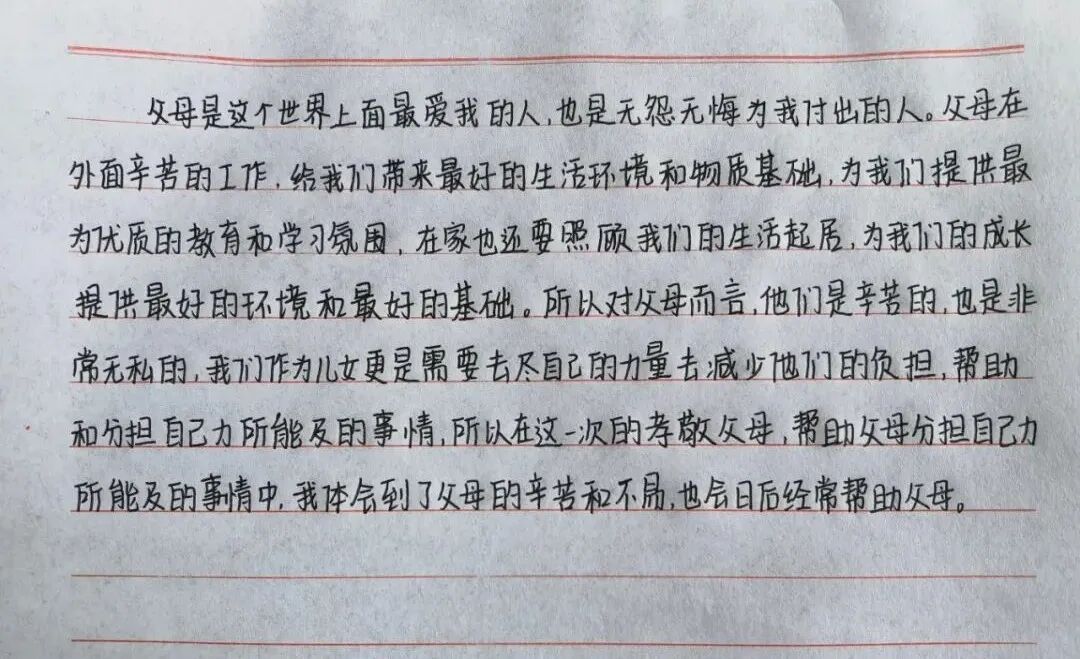 父母是这个世界上面最爱我的人,也是无怨无悔为我付出的人。父母在
外面辛苦的工作,给我们带来最好的生活环境和物质基础,为我们提供最
为优质的教育和学习氛围,在家也还要照顾我们的生活起居,为我们的成长
提供最好的环境和最好的基础。所以对父母而言,他们是辛苦的,也是非
常无私的,我们作为儿女更是需要去尽自己的力量去减少他们的负担,帮助
和分担自己力所能及的事情,所以在这一次的孝敬父母,帮助父母分担自己力
所能及的事情中,我体会到了父母的辛苦和不易,也会日后经常帮助父母。